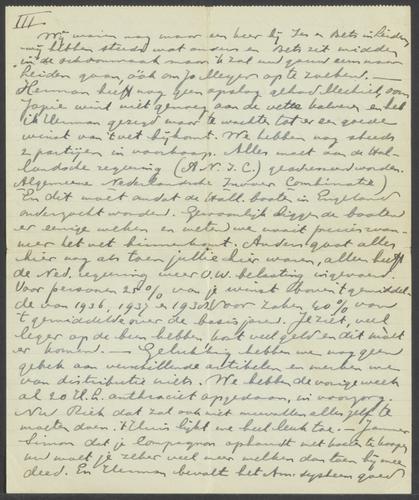 III
Wij waren nog maar een keer bij Jen en Bets in Leiden
wij hebben steeds wat anders en Bets zit midden
in de schoonmaak maar 'k zal wel gauw eens naar
Leiden gaan, ook om Jo Alleger op te zoeken. —
Herman heeft nog geen opslag gehad
Japie vind niet genoeg aan de vette kalveren en heb
ik Herman gezegd maar te wachten tot er een goede
winst van 't vet bijkomt. We hebben nog steeds
2 partijen in voorkoop. Alles moet aan de Hol-
landsche regeering (A.N.I.C.) geschreven worden.
Algemeene Nederlandsche Invoer Combinatie)
En dit moet omdat de Holl. booten in Engeland
onderzocht worden. Gewoonlijk liggen de booten
er eenige weken en weten we nooit precies wan-
neer het vet binnenkomt. Anders gaat alles
hier nog als toen jullie hier waren, alleen heeft
de Ned. regeering weer O.W. belasting ingevoerd.
Voor personen 25% van je winst boven 't gemiddel-
de van 1936, 1937 en 1938. Voor zaken 40% van
't gemiddelde over de basis jaren. Je ziet, veel
leger op de been hebben kost veel geld en dit moet
er komen. — Gelukkig hebben we nog geen
gebrek aan verschillende artikelen en merken we
van distributie niets. We hebben de vorige week
al 20 H.L. anthraciet opgedaan, in voorzorg.
Nu Riek dat zal ook niet meevallen alles zelf te
moeten doen. 't Huis lijkt me heel leuk toe. — Jammer
Simon dat je compagnon ophoudt met koeien te koopen
nu moet je zeker veel meer melken dan toen hij mee
deed. En Herman bevalt het Am. systeem goed